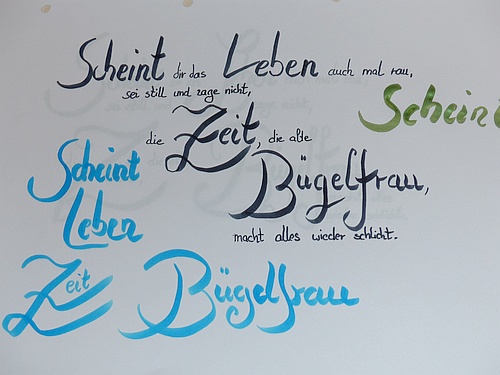 Scheint dir das Leben auch mal rau,
sei still und zage nicht,
die Zeit, die alte
Bügelfrau,
macht alles wieder schlicht.
Schein
Scheint
Leben
Zeit Bügelfrau